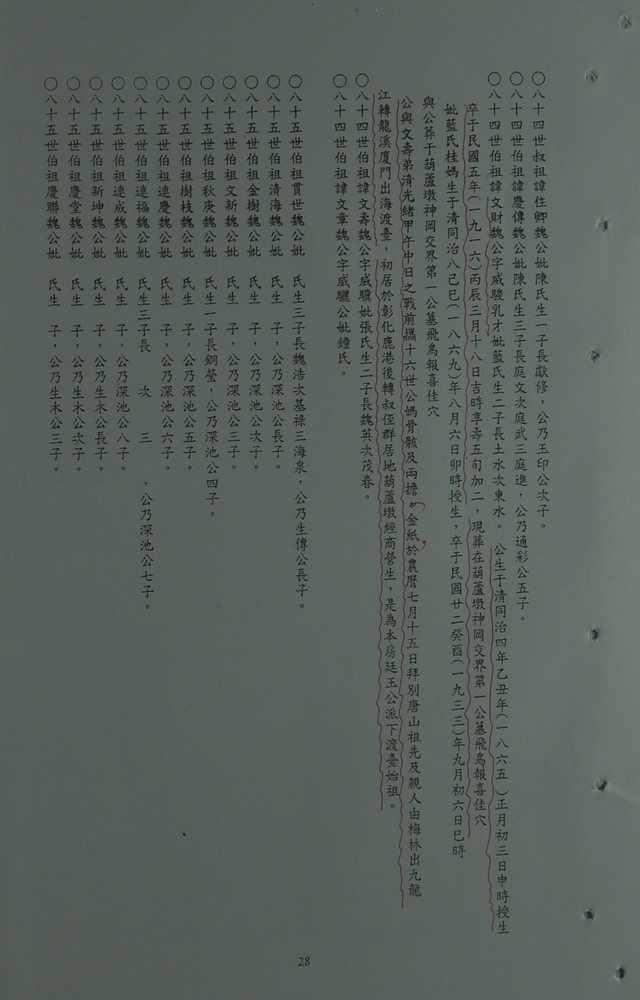 〇八十四世叔祖諱住卿魏公妣陳氏生一子長獻修，公乃玉印公次子。
〇八十四世伯祖諱慶傳魏公妣陳氏生三子長庭文次庭武三庭進，公乃通彩公五子。
〇八十四世伯祖諱文財魏公字威駿乳才妣藍氏生二子長土水次東水。公生于清同治四年乙丑年(一八六五)正月初三日申時授生
卒于民國五年(一九一六)丙辰三月十八日吉時享壽五旬加二，現葬在葫蘆墩神岡交界第一公墓飛鳥報喜佳穴
妣藍氏桂媽生于清同治八己巳(一八六九)年八月六日卯時授生，卒于民國廿二癸酉(一九三三)年九月初六日巳時
與公葬于葫蘆墩神岡交界第一公墓飛鳥報喜佳穴
公與文壽弟清光緒甲午中日之戰前攜十六世公媽骨骸及兩擔，金紙於農曆七月十五日拜別唐山祖先及親人由梅林出九龍
江轉龍溪廈門出海渡臺，初居於彰化鹿港後轉叔侄群居地葫蘆墩經商營生，是為本房廷玉公派下渡臺始祖。
〇八十四世伯祖諱文壽魏公字威驥妣張氏生二子長魏英次茂春。
〇八十四世伯祖諱文章魏公字威驪公妣鐘氏。
〇八十五世伯祖貫世魏公妣　氏生三子長魏浩次基祿三海泉，公乃生傳公長子。
〇八十五世伯祖清海魏公妣　氏生　子，公乃深池公長子。
〇八十五世伯祖金樹魏公妣　氏生　子，公乃深池公次子。
〇八十五世伯祖文新魏公妣　氏生　子，公乃深池公三子。
〇八十五世伯祖秋庚魏公妣　氏生一子長銅瑩，公乃深池公四子。
〇八十五世伯祖樹枝魏公妣　氏生　子，公乃深池公五子。
〇八十五世伯祖連慶魏公妣　氏生　子，公乃深池公六子。
〇八十五世伯祖連福魏公妣　氏生三子長　次　三　，公乃深池公七子。
〇八十五世伯祖連成魏公妣　氏生　子，公乃深池公八子。
〇八十五世伯祖新坤魏公妣　氏生　子，公乃生木公長子。
〇八十五世伯祖慶堂魏公妣　氏生　子，公乃生木公次子。
〇八十五世伯祖慶聯魏公妣　氏生　子，公乃生木公三子。
28